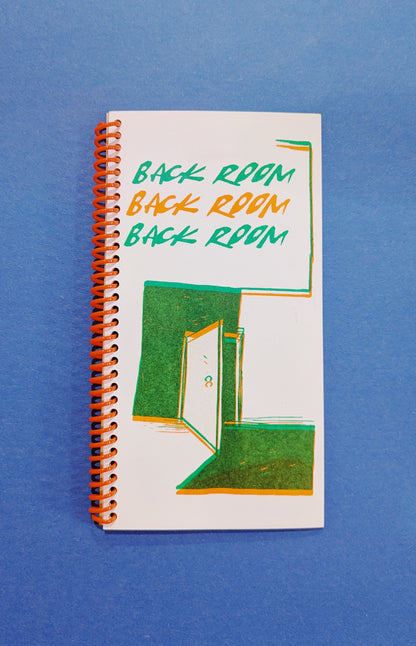 BACK ROOM
BACK ROOM
BACK ROOM